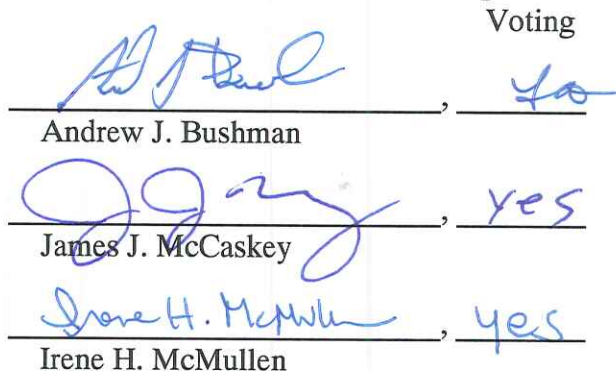 Voting
,
Andrew J. Bushman
, yes
James J. McCaskey
Irene H. McMullen, yes
Irene H. McMullen